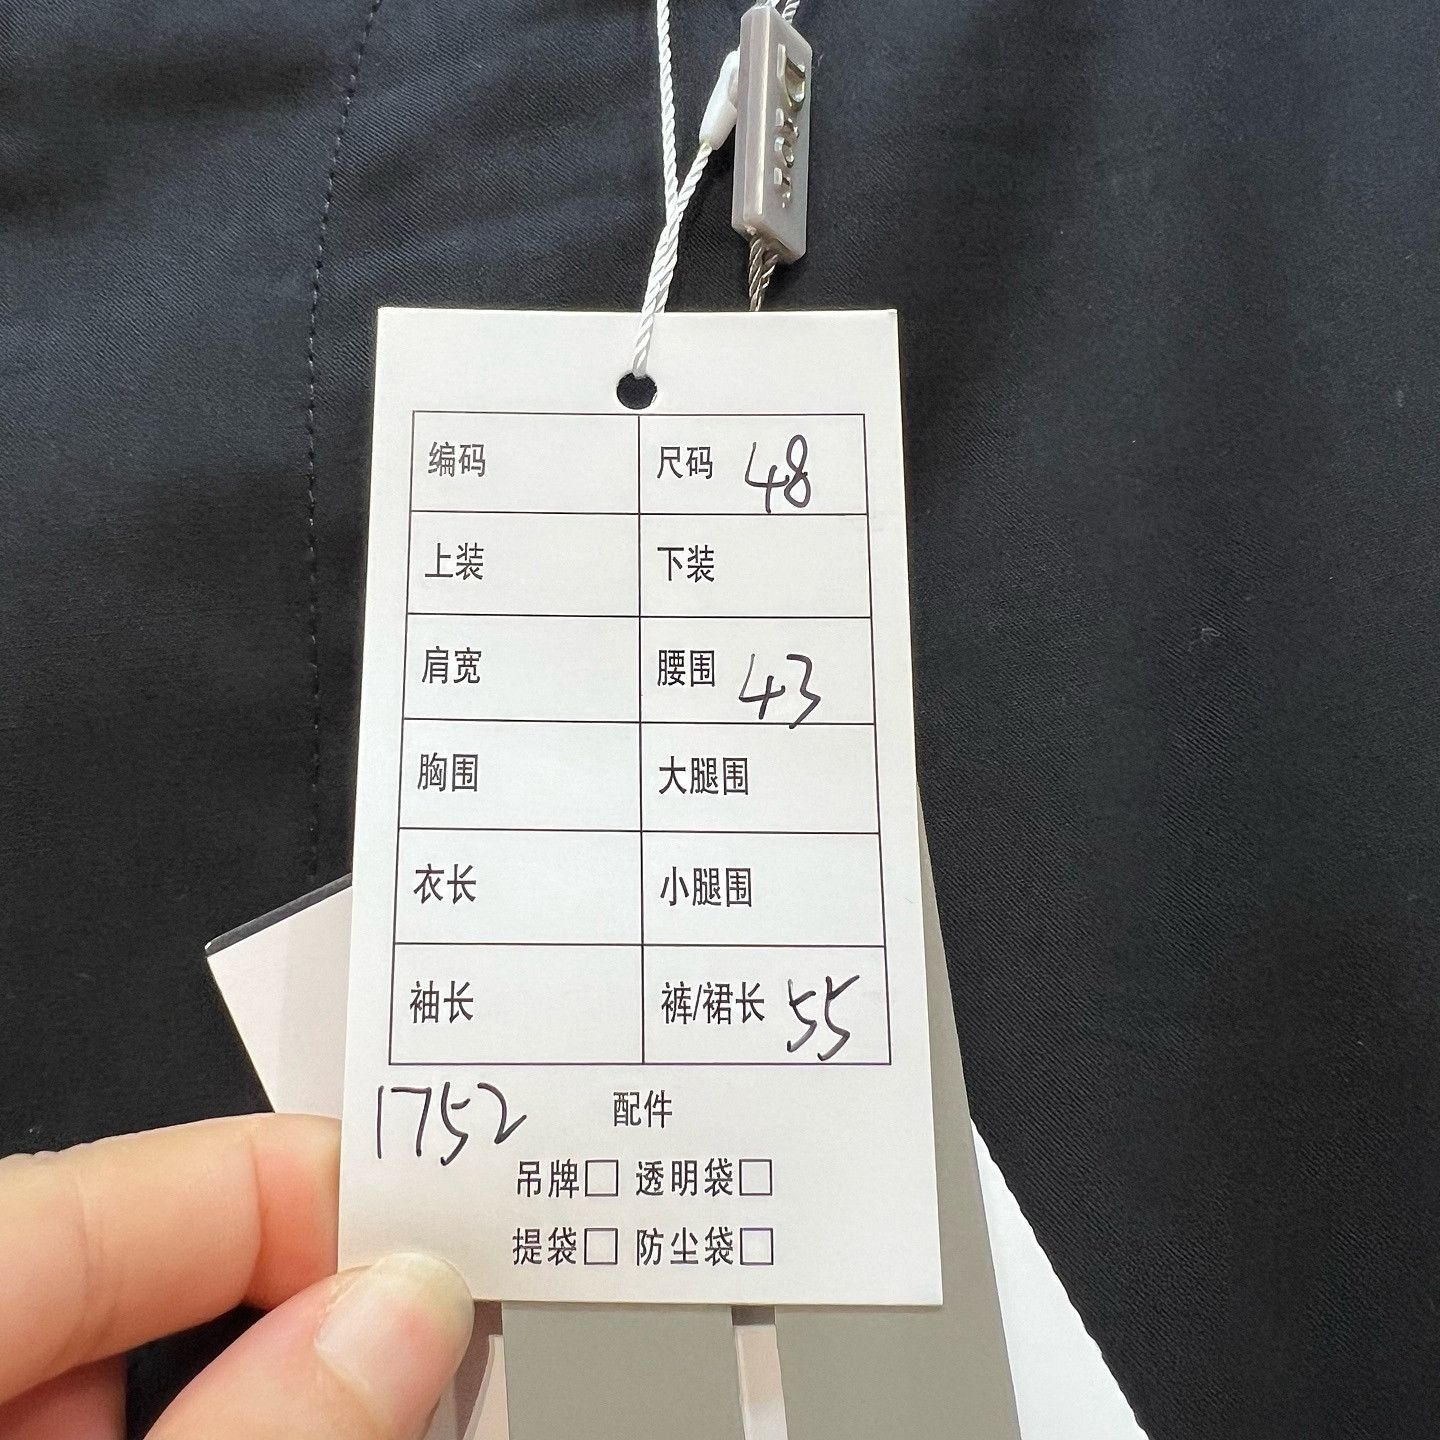 编码 尺码 48
上装 下装
肩宽 腰围 43
胸围 大腿围
衣长 小腿围
袖长 裤/裙长 55
1752 配件
吊牌□ 透明袋□
提袋□ 防尘袋□